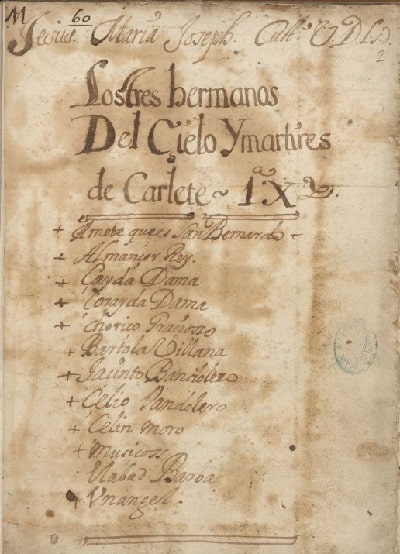 M 60
Jesus Maria Joseph.
2
Los tres hermanos
Del Cielo Y martires
de Carlete ~ 1ª X
+ Amete que es San Bernardo +
+ Almançor Rey.
+ Cayda Dama
+ Corayda Dama
+ Enorico Gracioso
+ Bartola Villana
+ Jacinto Bandolero
+ Celio Vandolero
+ Celin moro
+ Musicos
El abad Barba
+ Un angel.